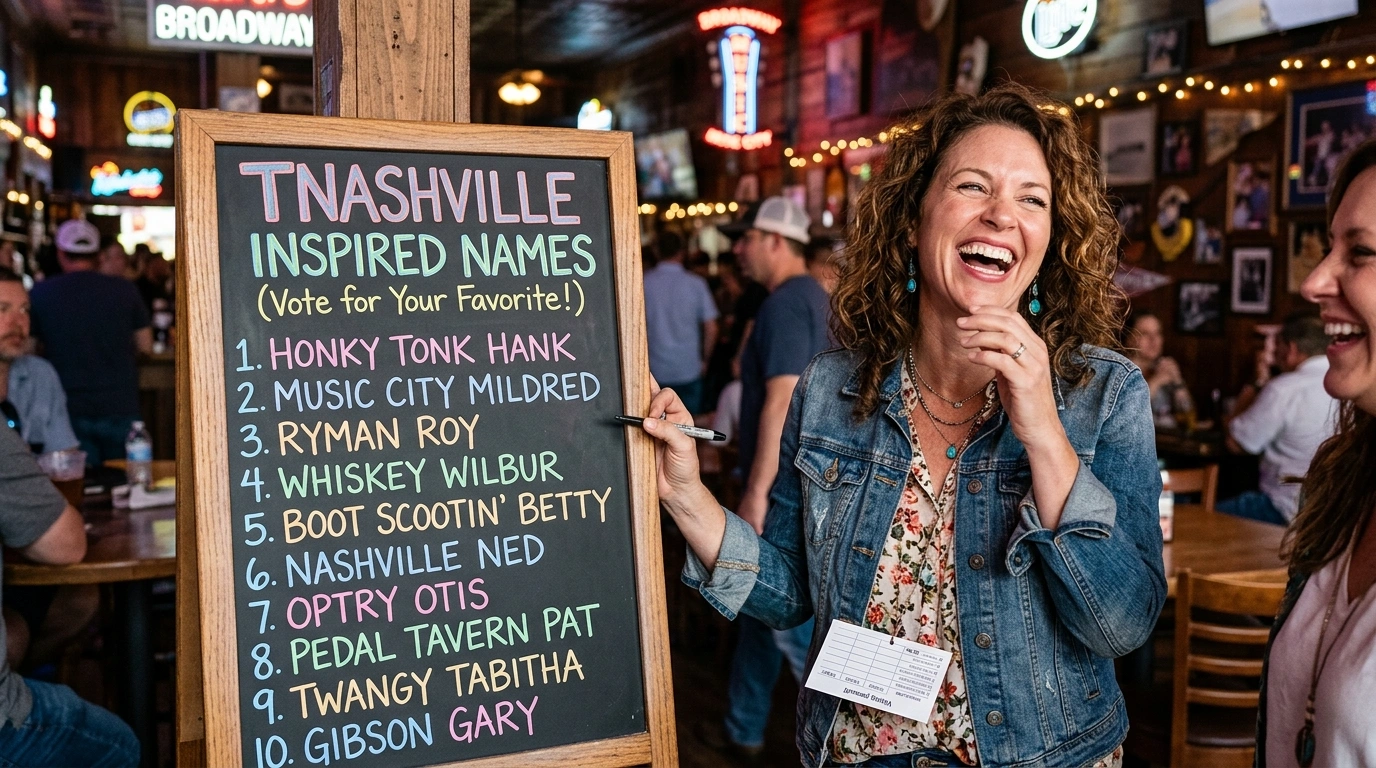 BROADWAY
TNASHVILLE
INSPIRED NAMES
(Vote for Your Favorite!)
1. HONKY TONK HANK
2. MUSIC CITY MILDRED
3. RYMAN ROY
4. WHISKEY WILBUR
5. BOOT SCOOTIN' BETTY
6. NASHVILLE NED
7. OPTRY OTIS
8. PEDAL TAVERN PAT
9. TWANGY TABITHA
10. GIBSON GARY
BROADWAY